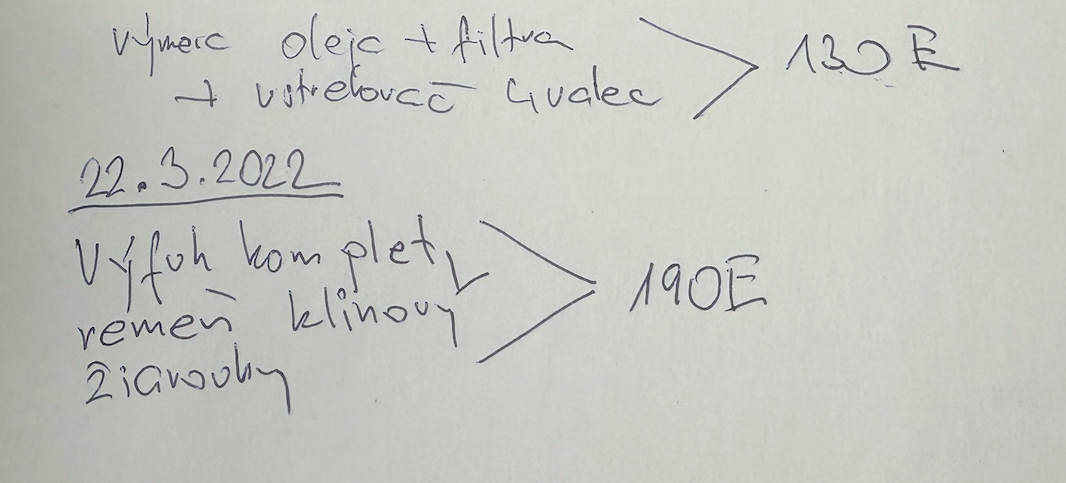 výmena oleja + filtra 130 E
+ vstrekovač 4valec
22.3.2022
Výfuk komplet,
remeň klinový 190E
žiarovky